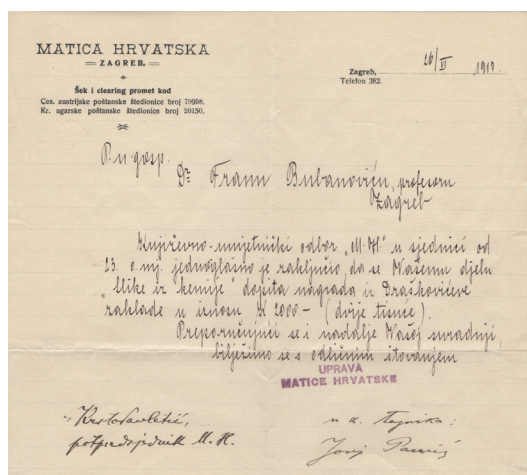 MATICA HRVATSKA
ZAGREB.
Šek i clearing promet kod
Ces. austrijske poštanske štedionice broj 79958.
Kr. ugarske poštanske štedionice broj 20150.
Zagreb, 26/II 1919.
Telefon 382.
P. n. gosp.
Dr Franu Bubanoviću, profesoru
Zagreb
Književno-umjetnički odbor "M.H." u sjednici od
23. o. mj. jednoglasno je zaključio, da se Vašemu djelu
"Slike iz kemije" dopita nagrada iz Draškovićeve
zaklade u iznosu K 2000- (dvije tisuće).
Preporučujući se i nadalje Vašoj suradnji,
bilježimo se s odličnim štovanjem
UPRAVA
MATICE HRVATSKE
potpredsjednik M. H.
tajnika: